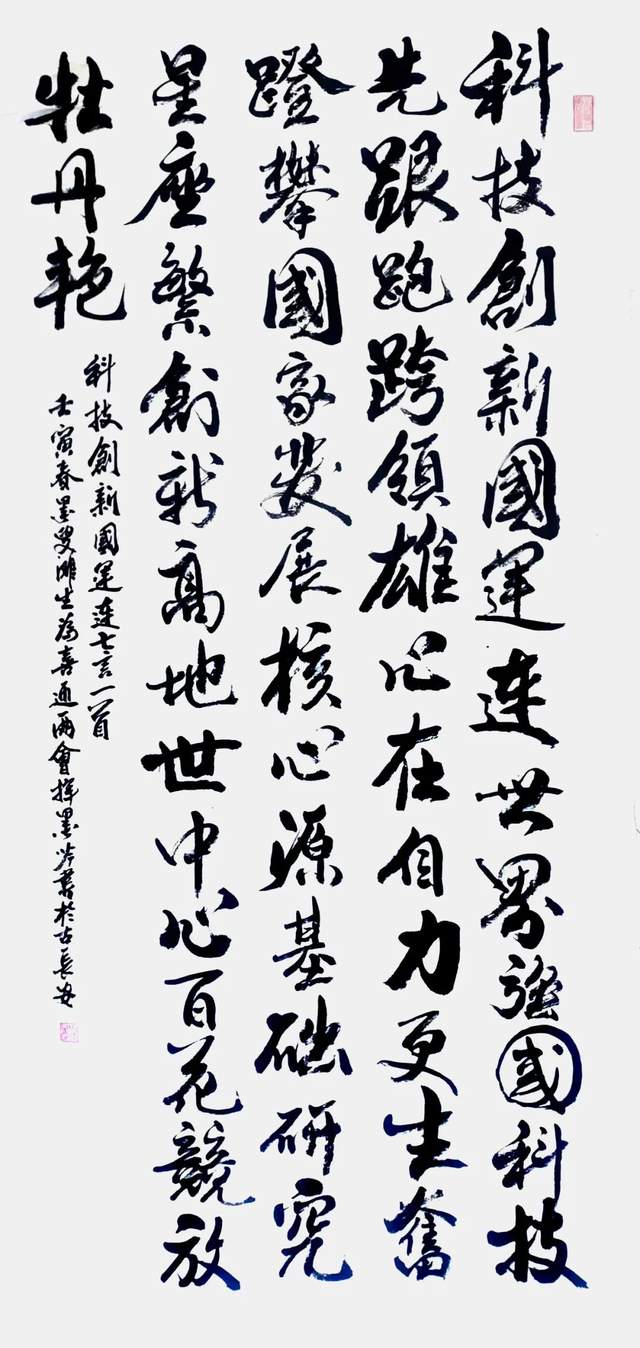 科技創新國運連世界強國科技
先跟跑跨領雄心在自力更生奮
蹬攀國家發展核心源基礎研究
星座繁創新高地世中心百花競放
牡丹艳
科技創新國運連七言一首
壬寅春墨叟生為喜迎兩會揮墨吟書於古長安